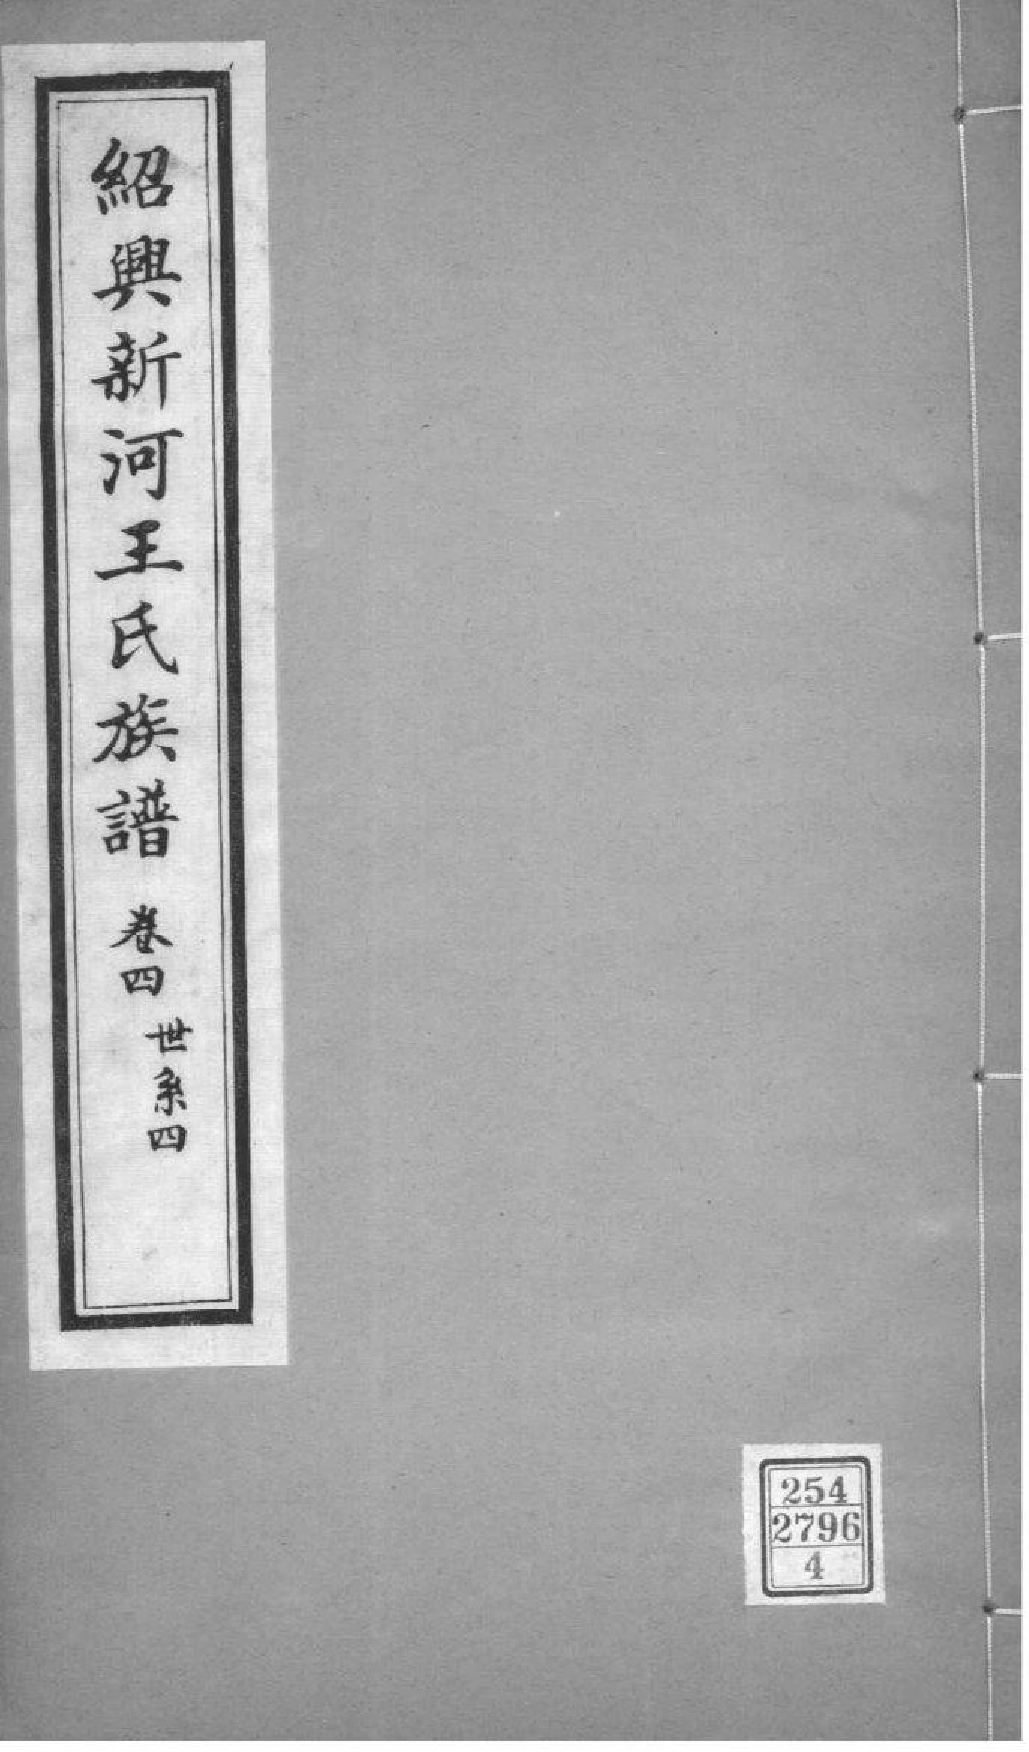 紹興新河王氏族譜 卷四
世系四
254
2796
4